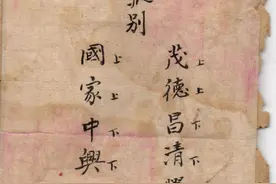 別
茂上德上昌下清下
國上家上中下興下